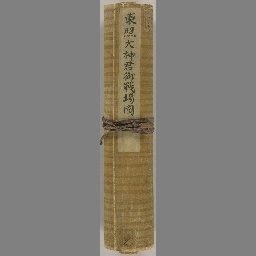 東照大神君御戦場図